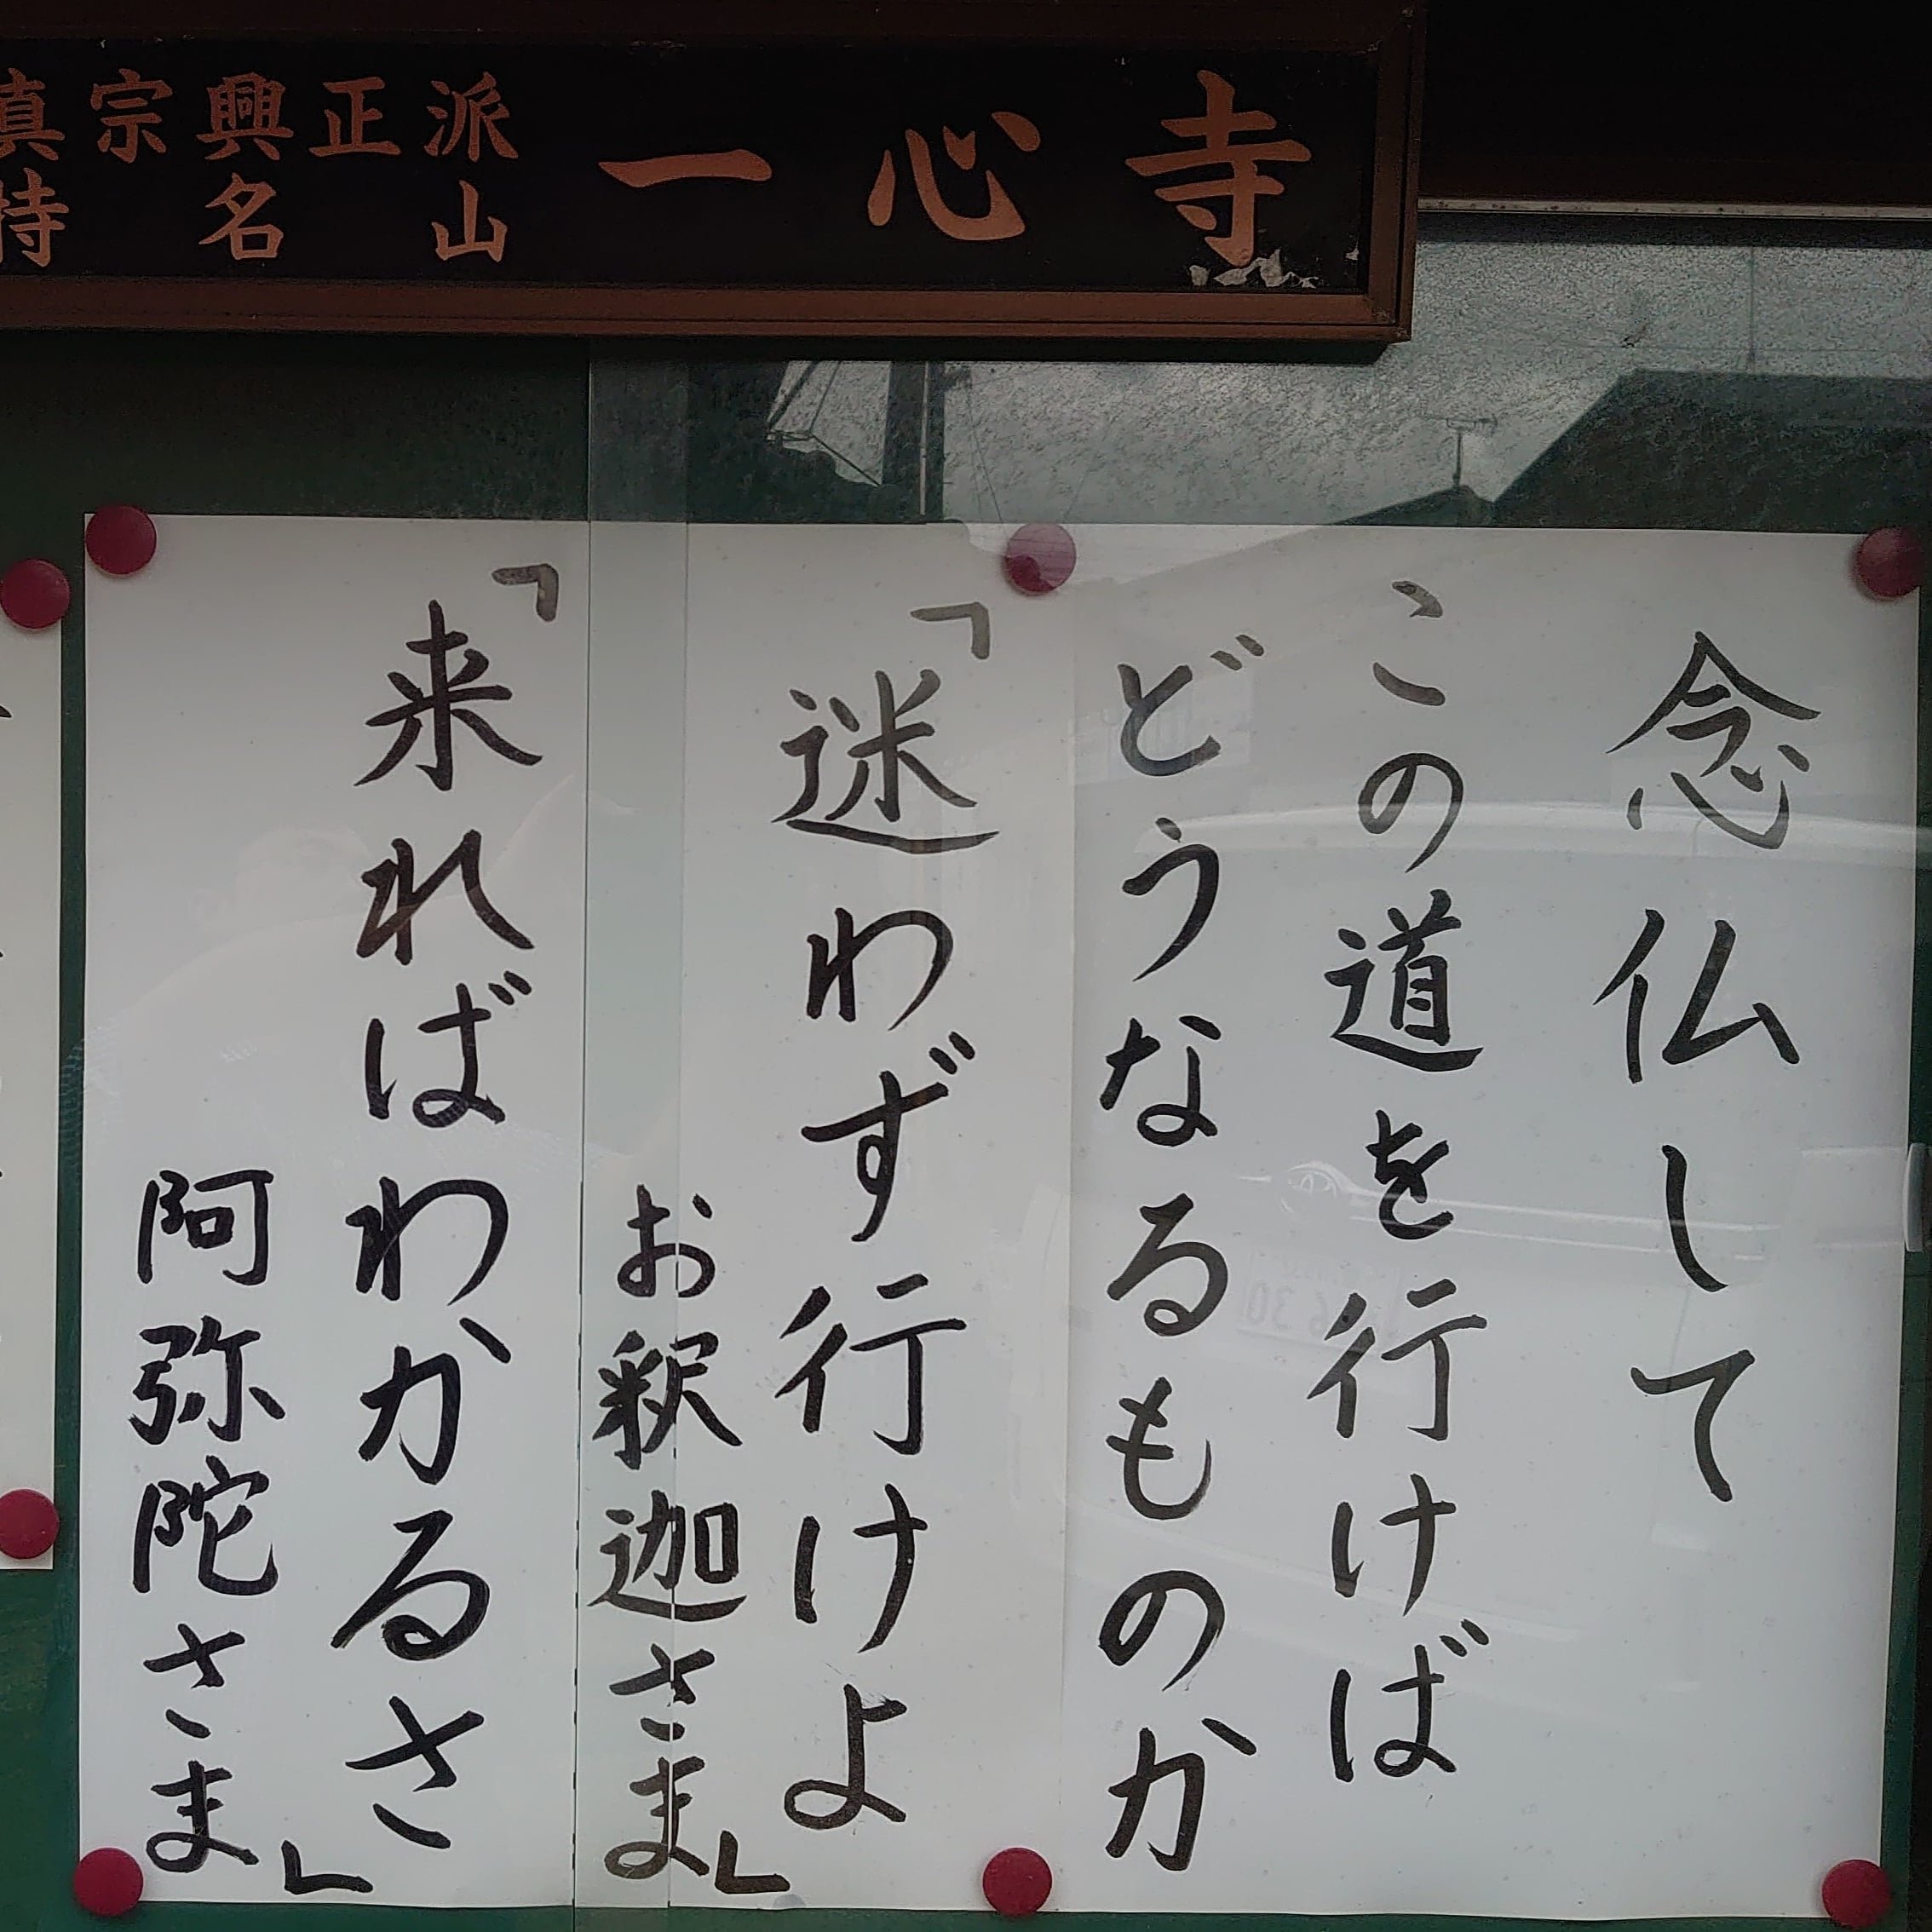 真宗興正派
特名山
一心寺
念仏して
この道を行けば
どうなるものか
「迷わず行けよ
お釈迦さま」
「来ればわかるさ
阿弥陀さま」